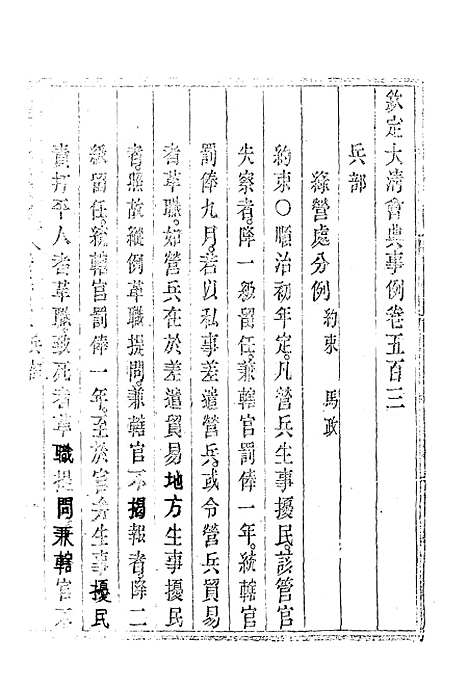 欽定大清會典事例卷五百三
兵部
綠營處分例 約束 馬政
約束○順治初年定。凡營兵生事擾民。該管官
失察者。降一級留任。兼轄官罰俸一年。統轄官
罰俸九月。若以私事差遣營兵。或令營兵貿易
者革職。如營兵在於差遣貿易地方生事擾民
者。照故縱例革職提問。兼轄官不揭報者。降二
級留任。統轄官罰俸一年。至於官弁生事擾民
責打平人者革職。致死者革職提問。兼轄官不